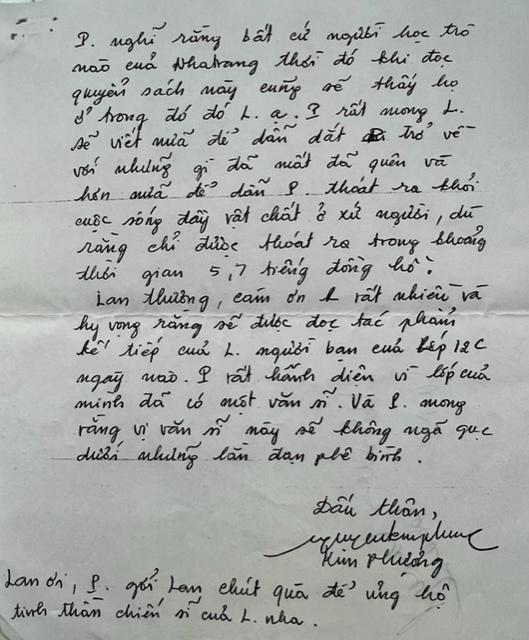 P. nghĩ rằng bất cứ người học trò
nào của Nhatrang thời đó khi đọc
quyển sách này cũng sẽ thấy họ
ở trong đó đó L. ạ. P rất mong L.
sẽ viết nữa để dẫn dắt trở về
với những gì đã mất đã quên và
hơn nữa để dẫn P. thoát ra khỏi
cuộc sống đầy vật chất ở xứ người, dù
rằng chỉ được thoát ra trong khoảng
thời gian 5, 7 tiếng đồng hồ.
Lan thương, cám ơn L rất nhiều và
hy vọng rằng sẽ được đọc tác phẩm
kế tiếp của L. người bạn của lớp 12C
ngày nào. P rất hãnh diện vì lớp của
mình đã có một văn sĩ. Và P. mong
rằng vị văn sĩ này sẽ không ngã gục
dưới những lằn đạn phê bình.
Dấu thân,
Kim Phượng
Lan ơi, P. gởi Lan chút quà để ủng hộ
tinh thần chiến sĩ của L. nha.